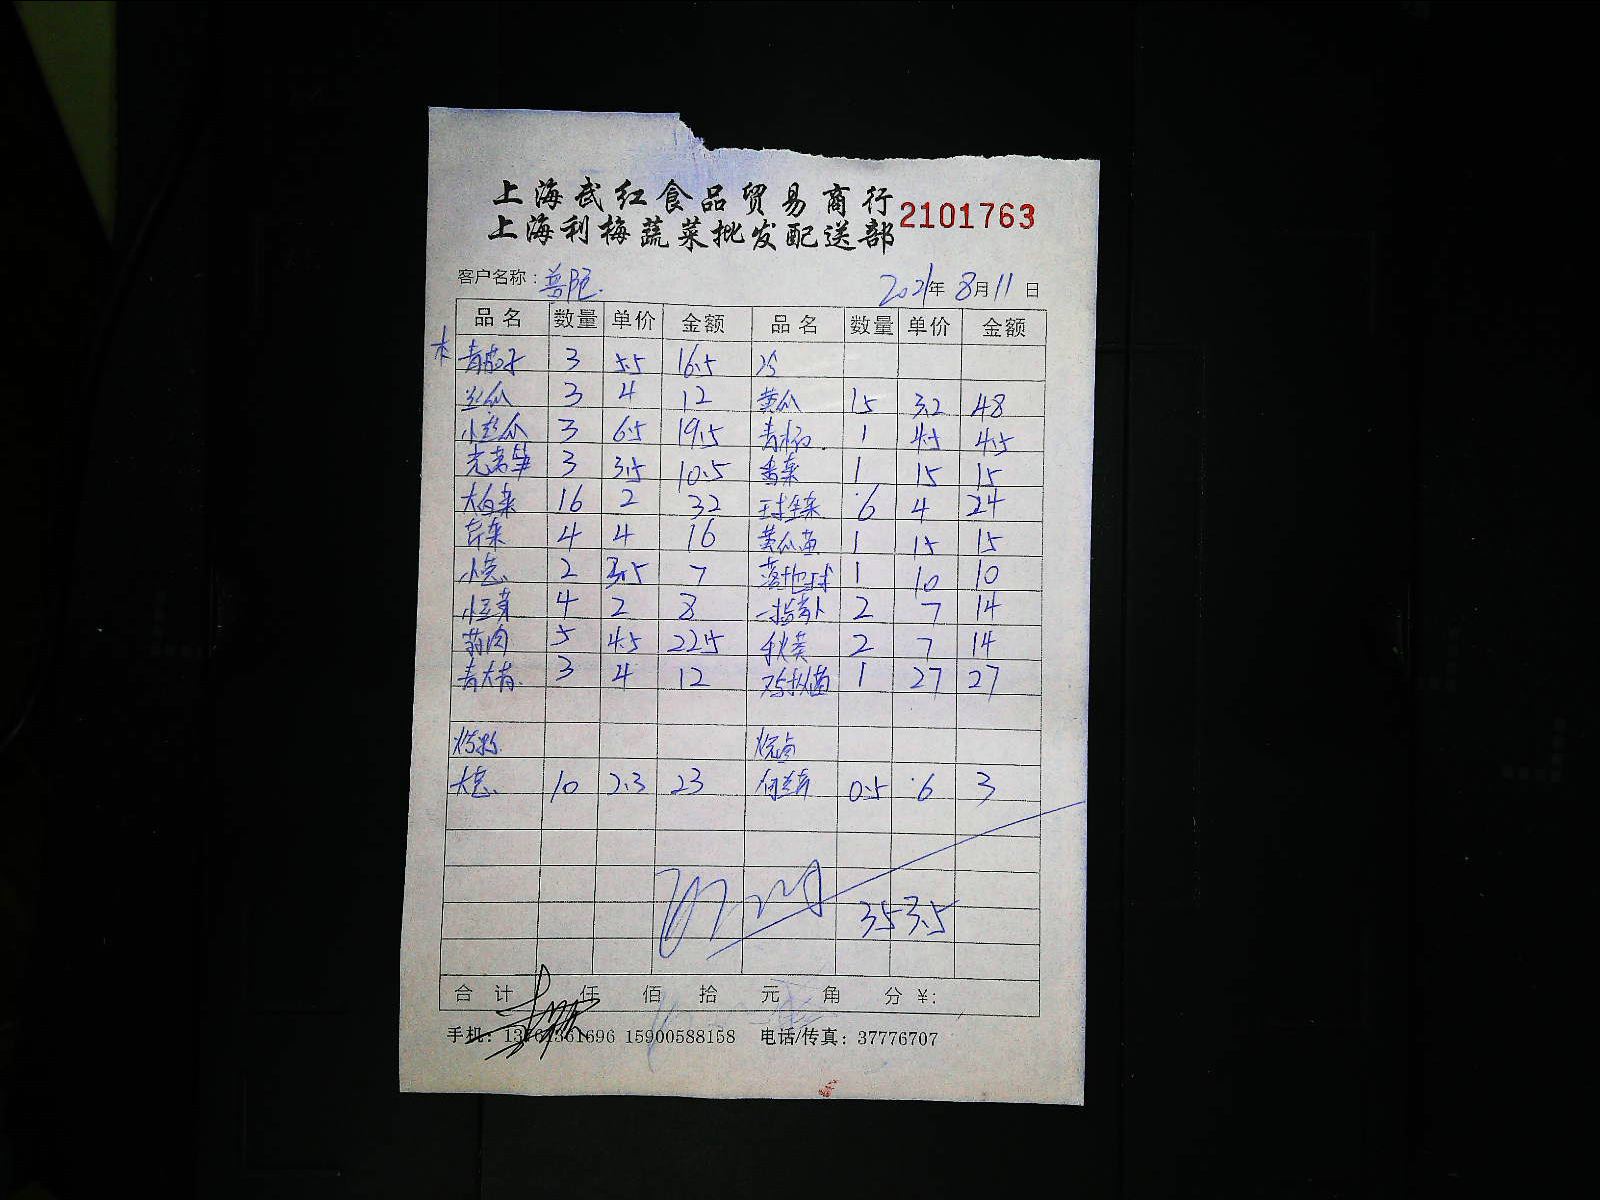 上海武红食品贸易商行
2101763
上海利梅蔬菜批发配送部
客户名称：普陀 2021年8月11日
品名 数量 单价 金额 品名 数量 单价 金额
青茄子 3 5.5 16.5 冷
丝瓜 3 4 12 黄瓜 15 3.2 48
小丝瓜 3 6.5 19.5 青椒 1 4.5 4.5
光莴笋 3 3.5 10.5 香菜 1 15 15
大白菜 16 2 32 球生菜 6 4 24
芹菜 4 4 16 黄瓜苗 1 15 15
小葱 2 3.5 7 落地球 1 10 10
小豆芽 4 2 8 一指青卜 2 7 14
5 4.5 22.5 秋葵 2 7 14
青大青 3 4 12 鸡枞菌 1 27 27
烧卤
大葱 10 2.3 23 0.5 6 3
353.5
合计 仟 佰 拾 元 角 分 ¥:
手机： 15900588158 电话/传真：37776707